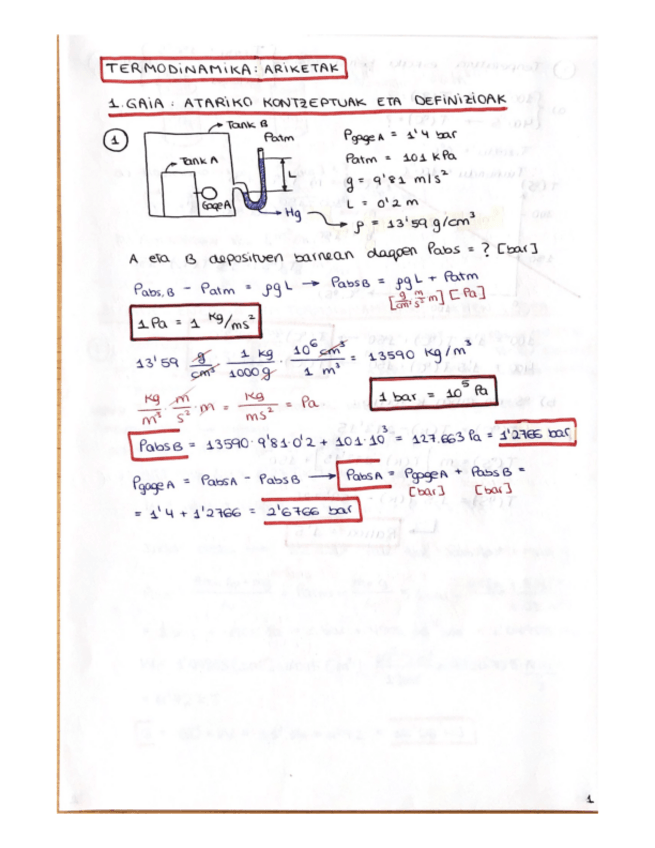 TERMODINAMIKA: ARIKETAK
1. GAIA: ATARIKO KONTZEPTUAK ETA DEFINIZIOAK
1
Tank B
Patm
Tank A
L
Gage A
Hg
PgageA = 1'4 bar
Patm = 101 KPa
g = 9'81 m/s²
L = 0'2 m
ρ = 13'59 g/cm³
A eta B deposituen barnean dagoen Pabs = ? [bar]
Pabs,B - Patm = ρgL → PabsB = ρgL + Patm
[g/cm³ m/s² m] [Pa]
1 Pa = 1 Kg/ms²
13'59 g/cm³ · 1 kg/1000g · 10⁶ cm³/1 m³ = 13590 Kg/m³
Kg/m³ · m/s² · m = Kg/ms² = Pa
1 bar = 10⁵ Pa
PabsB = 13590·9'81·0'2 + 101·10³ = 127.663 Pa = 1'2766 bar
PgageA = PabsA - PabsB → PabsA = PgageA + PabsB =
[bar] [bar]
= 1'4 + 1'2766 = 2'6766 bar
1